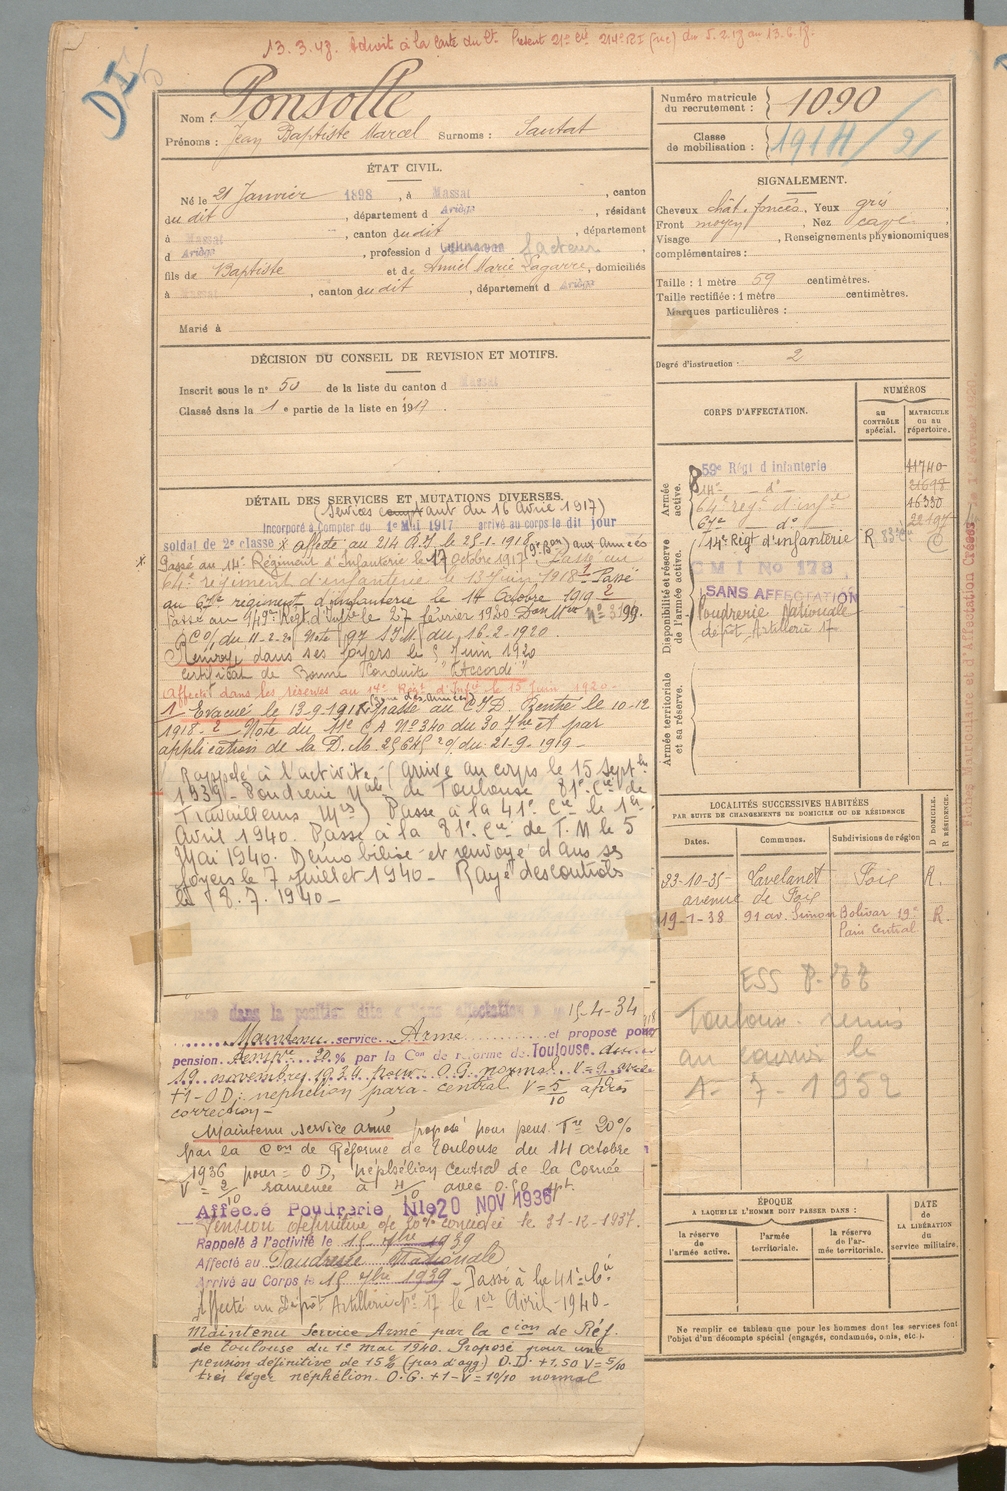 13.3.48. Admis à la Carte du Ct. Présent 21e Cie 214e RI (rue) du 5.2.18 au 13.6.18.
DI
Nom : Ponsolle
Prénoms : Jean Baptiste Marcel Surnoms : Santat
Numéro matricule
du recrutement : 1090
Classe
de mobilisation : 1914/21
ÉTAT CIVIL.
Né le 21 Janvier 1898, à Massat, canton
du dit, département d Ariège, résidant
à Massat, canton dudit, département
d Ariège, profession d facteur
fils de Baptiste et de Amiel Marie Lagarre, domiciliés
à Massat, canton dudit, département d Ariège
Marié à
SIGNALEMENT.
Cheveux chât. foncés, Yeux gris
Front moyen, Nez cave
Visage , Renseignements physionomiques
complémentaires :
Taille : 1 mètre 59 centimètres.
Taille rectifiée : 1 mètre centimètres.
Marques particulières :
Degré d'instruction : 2
DÉCISION DU CONSEIL DE REVISION ET MOTIFS.
Inscrit sous le no 50 de la liste du canton d Massat
Classé dans la 1e partie de la liste en 1917.
DÉTAIL DES SERVICES ET MUTATIONS DIVERSES.
(Services comptant du 16 Avril 1917)
Incorporé à Compter du 1e Mai 1917 arrivé au corps le dit jour
soldat de 2e classe x affecté au 214 R.I. le 28-1-1918
Passé au 14e Régiment d'Infanterie le 17 octobre 1917 (9e Bon) aux Armées Passé au
64e régiment d'infanterie le 13 Juin 1918 1 Passé
au 67e régiment d'infanterie le 14 Octobre 1919 2
Passé au 149e Régt d'Infie le 27 février 1920 Don Mre No 3199.
RCO/ du 11-2-20 Note (97 S.I.M) du 16-2-1920.
Renvoyé dans ses foyers le 5 Juin 1920
Certificat de Bonne Conduite "Accordé"
Affecté dans les réserves au 14e Rég. d'Infie le 15 Juin 1920-
1 Evacué le 13-9-1918 (Zone des Armées) passé au C.I.D. Rentré le 10-12
1918-2 Note du 11e CA No 340 du 30 7bre et par
application de la D.M. 25645 20/ du 21-9-1919-
Rappelé à l'activité (arrivé au corps le 15 septbre
1939- Poudrerie Nale de Toulouse 81e Cie de
Travailleurs Mres) Passé à la 41e Cie le 1er
Avril 1940. Passé à la 81e Cie de T.M le 5
Mai 1940. Démobilisé et renvoyé dans ses
foyers le 7 juillet 1940- Rayé des contrôles
le 8.7.1940-
dans la position dite « Sans affectation » 15-4-34
Maintenu service Armé et proposé pour
pension tempre 20 % par la Con de réforme de Toulouse du
19 novembre 1934 pour O.G normal V=
+1-OD: néphélion para central V=5/10 après
correction-
Maintenu service armé proposé pour pens. Tre 20%
par la Con de Réforme de Toulouse du 14 octobre
1936 pour = OD, néphélion central de la Cornée
V = 2/10 ramenée à 4/10 avec 0.50 spt.
Affecté Poudrerie Nle 20 NOV 1936
Pension définitive de 20% concédée le 31-12-1937.
Rappelé à l'activité le 15 7bre 1939
Affecté au Poudrerie Nationale
Arrivé au Corps le 15 7bre 1939- Passé à la 41e Cie
Affecté au Dépôt Artillerie No 17 le 1er Avril-1940-
Maintenu Service Armé par la Cion de Réf.
de Toulouse du 1e mai 1940. Proposé pour une
pension définitive de 15% (pas d'agg) O.D: +1.50 V=5/10
très léger néphélion. O.G. +1-V=10/10 normal
CORPS D'AFFECTATION.
NUMÉROS
au CONTRÔLE spécial.
MATRICULE ou au répertoire.
Armée active.
59e Régt d infanterie 11740
14e do 21698
64e régt d'infie 16330
67e do 22197
Disponibilité et réserve de l'armée active.
14e Régt d'infanterie R
C M I No 178
SANS AFFECTATION
Poudrerie Nationale
dépôt Artillerie 17
Armée territoriale et sa réserve.
LOCALITÉS SUCCESSIVES HABITÉES
PAR SUITE DE CHANGEMENTS DE DOMICILE OU DE RÉSIDENCE
Dates. Communes. Subdivisions de région
D. DOMICILE. R. RÉSIDENCE.
23-10-35- Lavelanet Foix R.
avenue de Foix
19-1-38 91 av. Simon Bolivar 19e R.
Paris Central
ESS P.
Toulouse remis
au le
1-7-1952
ÉPOQUE
A LAQUELLE L'HOMME DOIT PASSER DANS :
la réserve de l'armée active.
l'armée territoriale.
la réserve de l'armée territoriale.
DATE de LA LIBÉRATION du service militaire.
Ne remplir ce tableau que pour les hommes dont les services font
l'objet d'un décompte spécial (engagés, condamnés, omis, etc.).